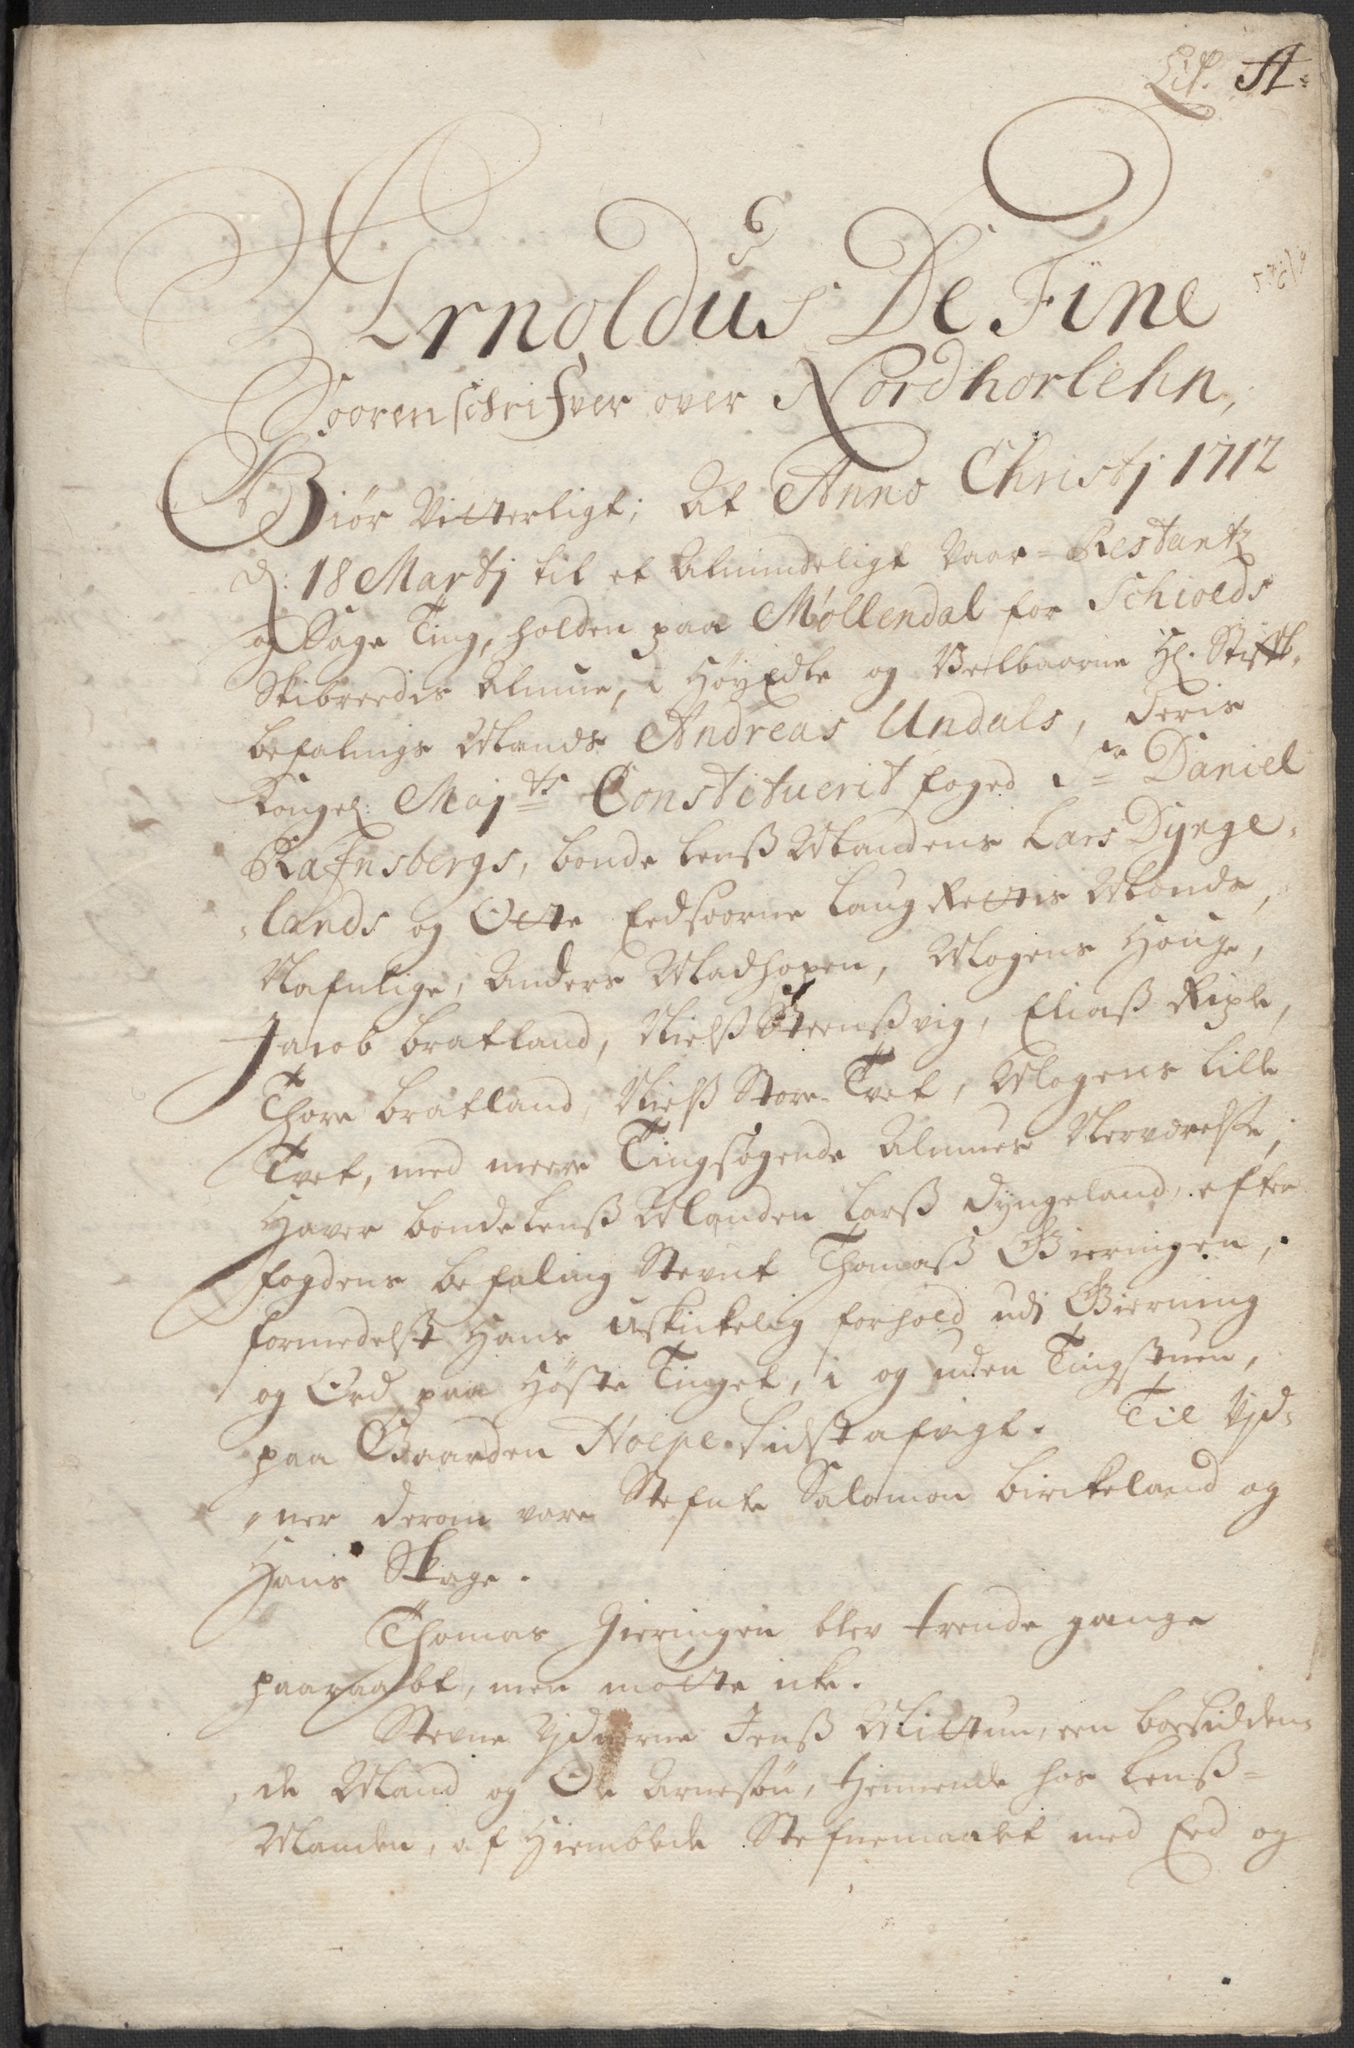 Lit. A.
Arnoldus De Fine
Soorenschrifver over Nordhorlehn,
Giør Vitterligt; At Anno Christj 1712
d: 18 Martj til et Almindeligt Vaar-Restantz
og Sage Ting, holden paa Møllendal for Schiolds
Skibreedis Almue, i HøyEdle og Velbaarne Hr. Stift-
befalings Mands Andreas Undals, deris
Kongel: Majts Constituerit foged Sr Daniel
Rafnsbergs, bonde lenß Mandens Lars Dynge-
lands og Otte Eedsoorne Laug Rettis Mænds,
Nafnlige, Anders Madhopen, Mogens Houge,
Jacob Bratland, Nielß Steenßvig, Eliaß Riple,
Thore Bratland, Nielß Store-Tvet, Mogens Lille
Tvet, med meere Tingsøgende Almues Nerværelse;
Haver bondelenß Manden Larß Dyngeland, efter
fogdens befaling Stevnt Thomaß Gieringen,
formedelst Hans uskikelig forhold udj Gierning
og Ord paa Høste Tinget, i og uden Tingstuen,
paa Gaarden Hope sidst afvigt. Til Vid-
ner derom vare Stefnte Salomon Birkeland og
Hans Skage.
Thomas Gieringen blev trende gange
paaraabt, men møtte icke.
Stevne Vidnerne Jenß Mittun, een boesidden-
de Mand og Ole Arnesøn, tienende hos Lenß-
Manden, af Hiemblede Stefnemaalet med Eed og